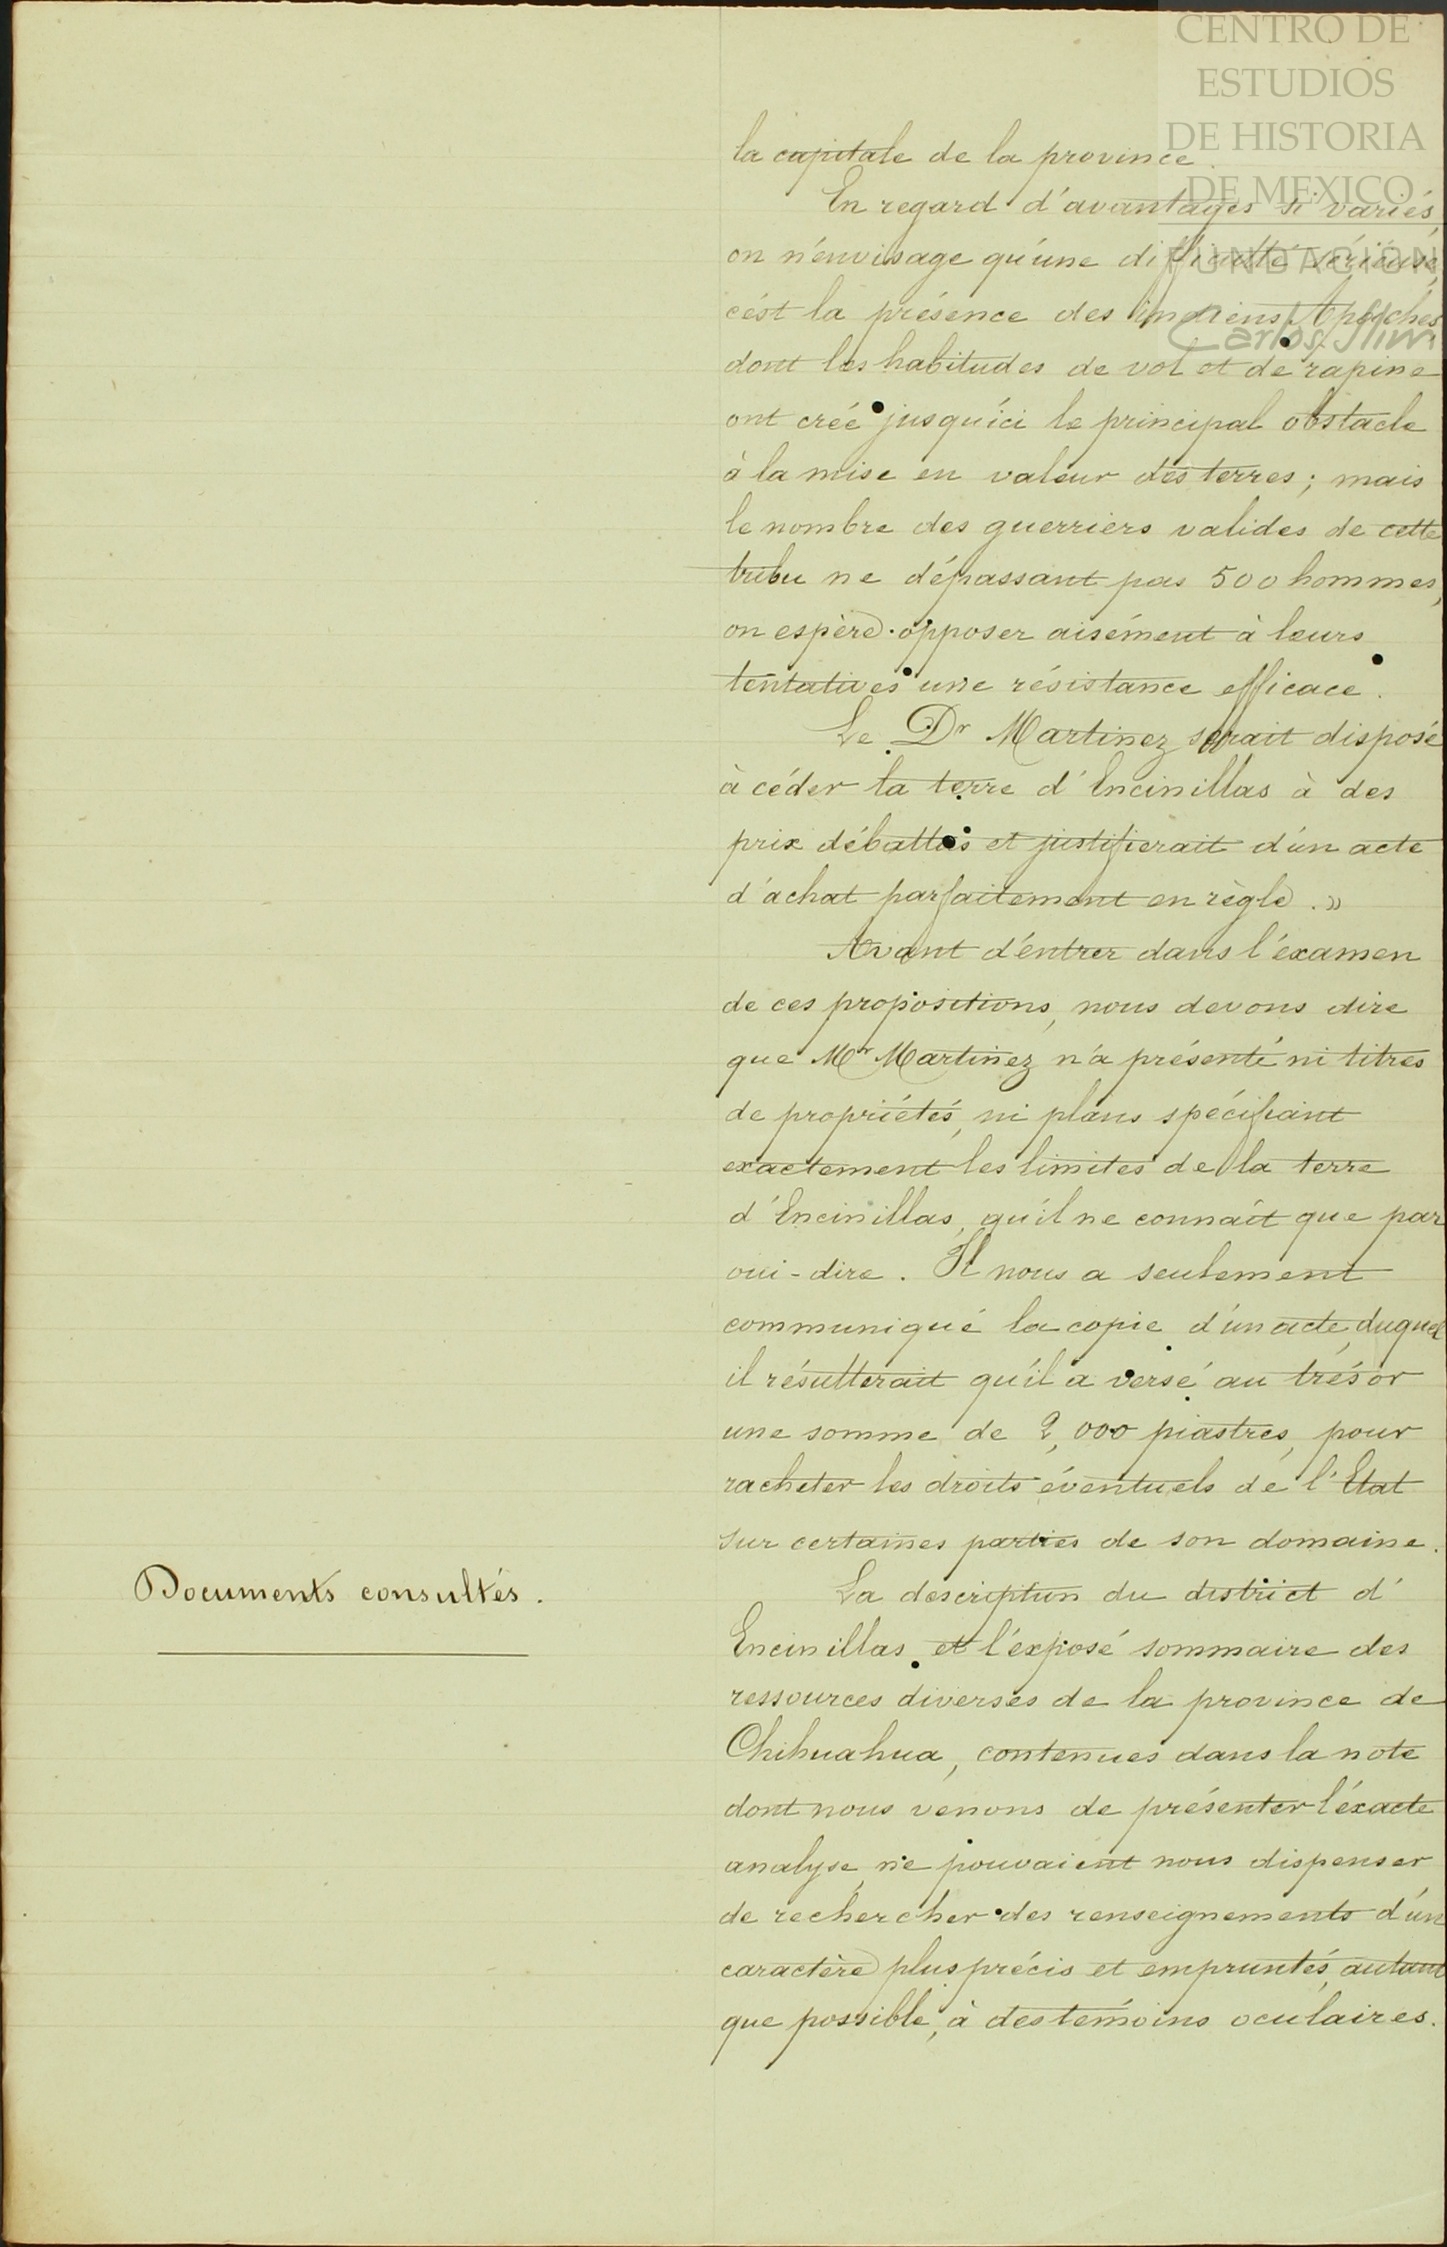 CENTRO DE
ESTUDIOS
DE HISTORIA
DE MEXICO
FUNDACIÓN
Carlos Slim
la capitale de la province.
En regard d'avantages si variés,
on n'envisage qu'une difficulté sérieuse,
c'est la présence des indiens Apaches
dont les habitudes de vol et de rapine
ont créé jusqu'ici le principal obstacle
à la mise en valeur des terres ; mais
le nombre des guerriers valides de cette
tribu ne dépassant pas 500 hommes,
on espère opposer aisément à leurs
tentatives une résistance efficace.
Le Dr Martinez serait disposé
à céder la terre d'Encinillas à des
prix débattus et justifierait d'un acte
d'achat parfaitement en règle. »
Avant d'entrer dans l'éxamen
de ces propositions, nous devons dire
que Mr Martinez n'a présenté ni titres
de propriétés, ni plans spécifiant
exactement les limites de la terre
d'Encinillas, qu'il ne connaît que par
oui-dire. Il nous a seulement
communiqué la copie d'un acte, duquel
il résulterait qu'il a versé au trésor
une somme de 2,000 piastres, pour
racheter les droits éventuels de l'Etat
sur certaines parties de son domaine.
Documents consultés.
La description du district d'
Encinillas et l'exposé sommaire des
ressources diverses de la province de
Chihuahua, contenues dans la note
dont nous venons de présenter l'éxacte
analyse, ne pouvaient nous dispenser
de rechercher des renseignements d'un
caractère plus précis et empruntés, autant
que possible, à des témoins oculaires.